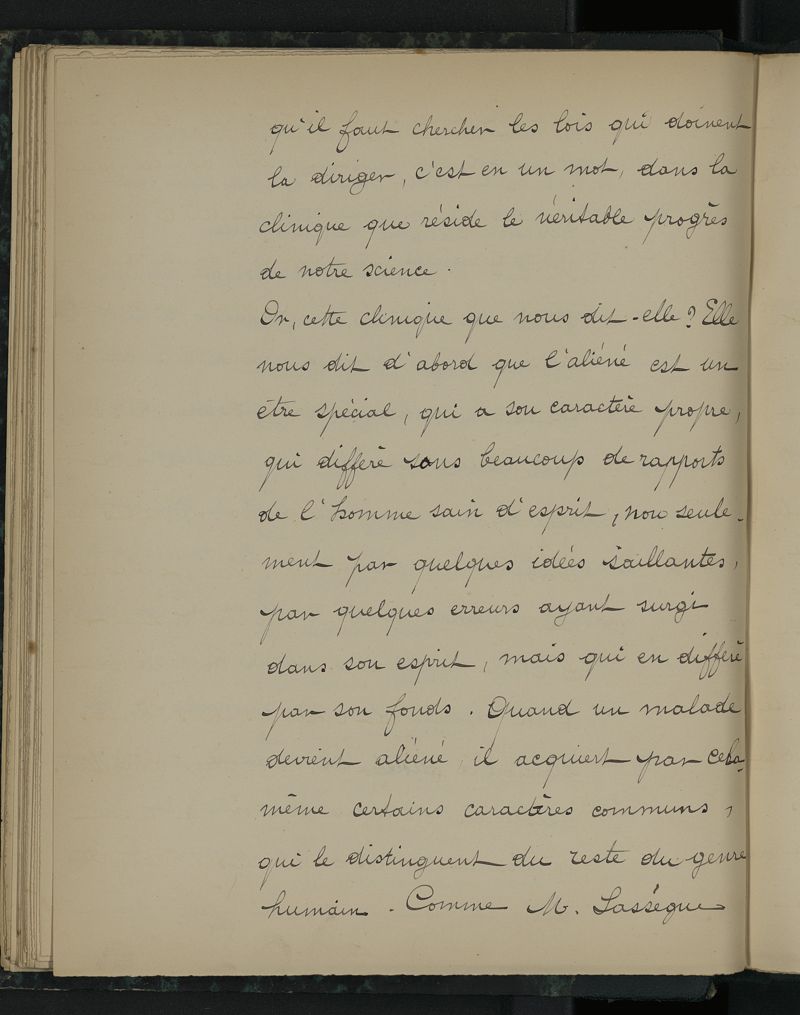 qu'il faut chercher les lois qui doivent
la diriger, c'est en un mot, dans la
clinique que réside le véritable progrès
de notre science.
Or, cette clinique que nous dit-elle? Elle
nous dit d'abord que l'aliéné est un
être spécial, qui a son caractère propre,
qui diffère sous beaucoup de rapports
de l'homme sain d'esprit, non seule-
ment par quelques idées saillantes,
par quelques erreurs ayant surgi
dans son esprit, mais qui en diffère
par son fonds. Quand un malade
devient aliéné, il acquiert par cela
même certains caractères communs,
qui le distinguent du reste du genre
humain. Comme M. Lassègue